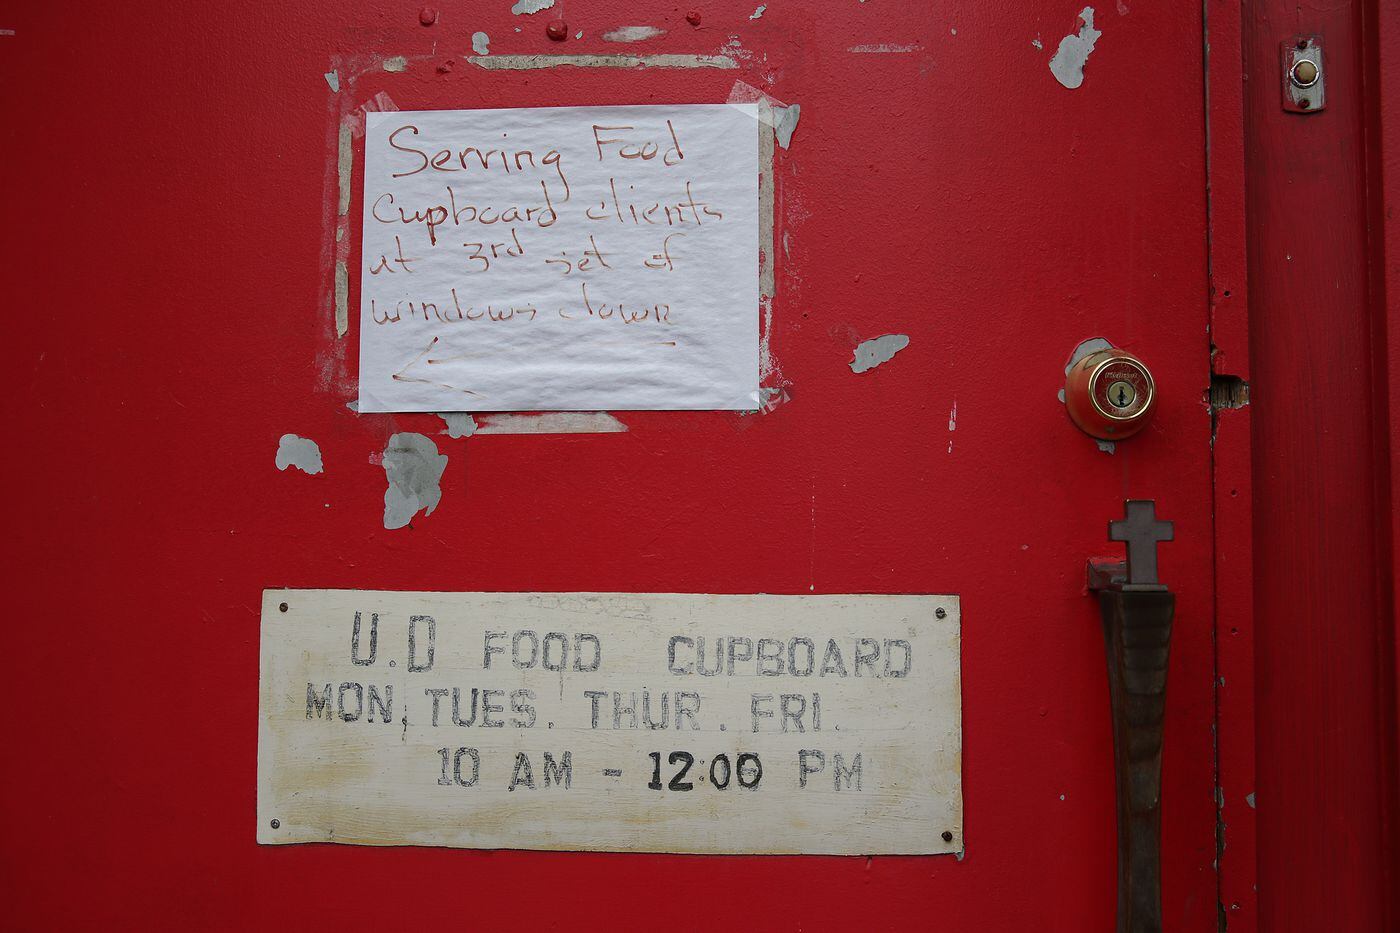 Serving Food
Cupboard clients
at 3rd set of
windows down
U.D FOOD CUPBOARD
MON, TUES. THUR. FRI.
10 AM - 12:00 PM